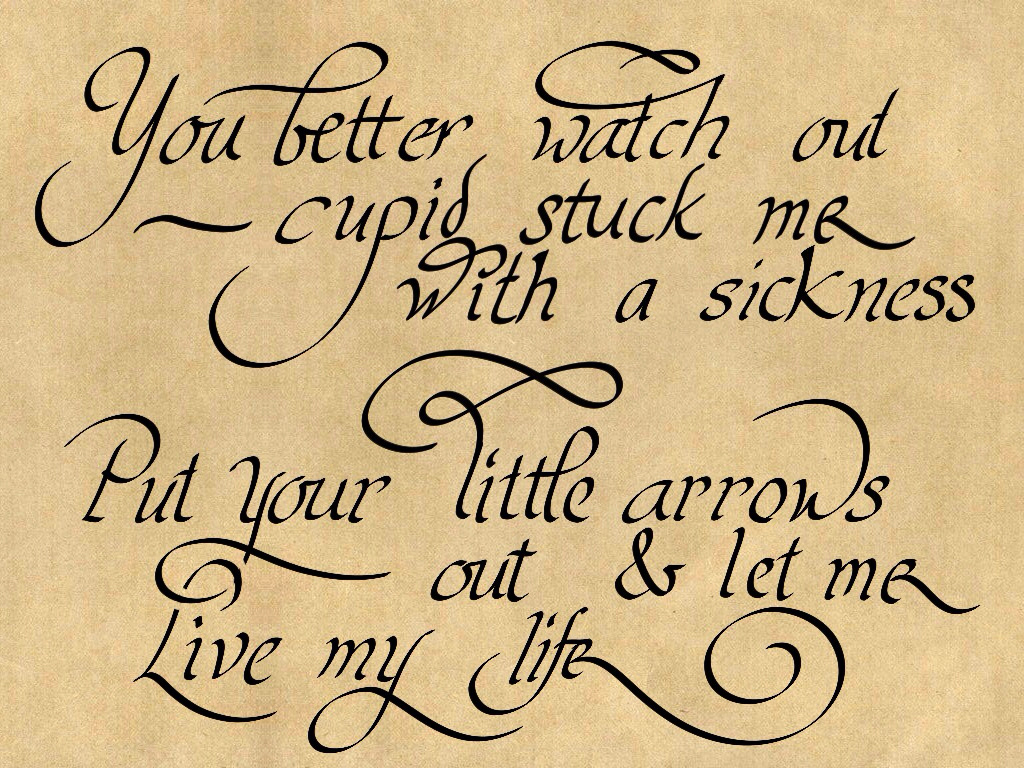 You better watch out
cupid stuck me
with a sickness
Put your little arrows
out & let me
Live my life